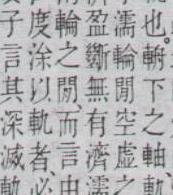 也。輈下之軸、軌
濡輪閒空虛
盈斷無有濟濡
輪之閒、而言由
度涂以軌者、必
子言其深滅軌